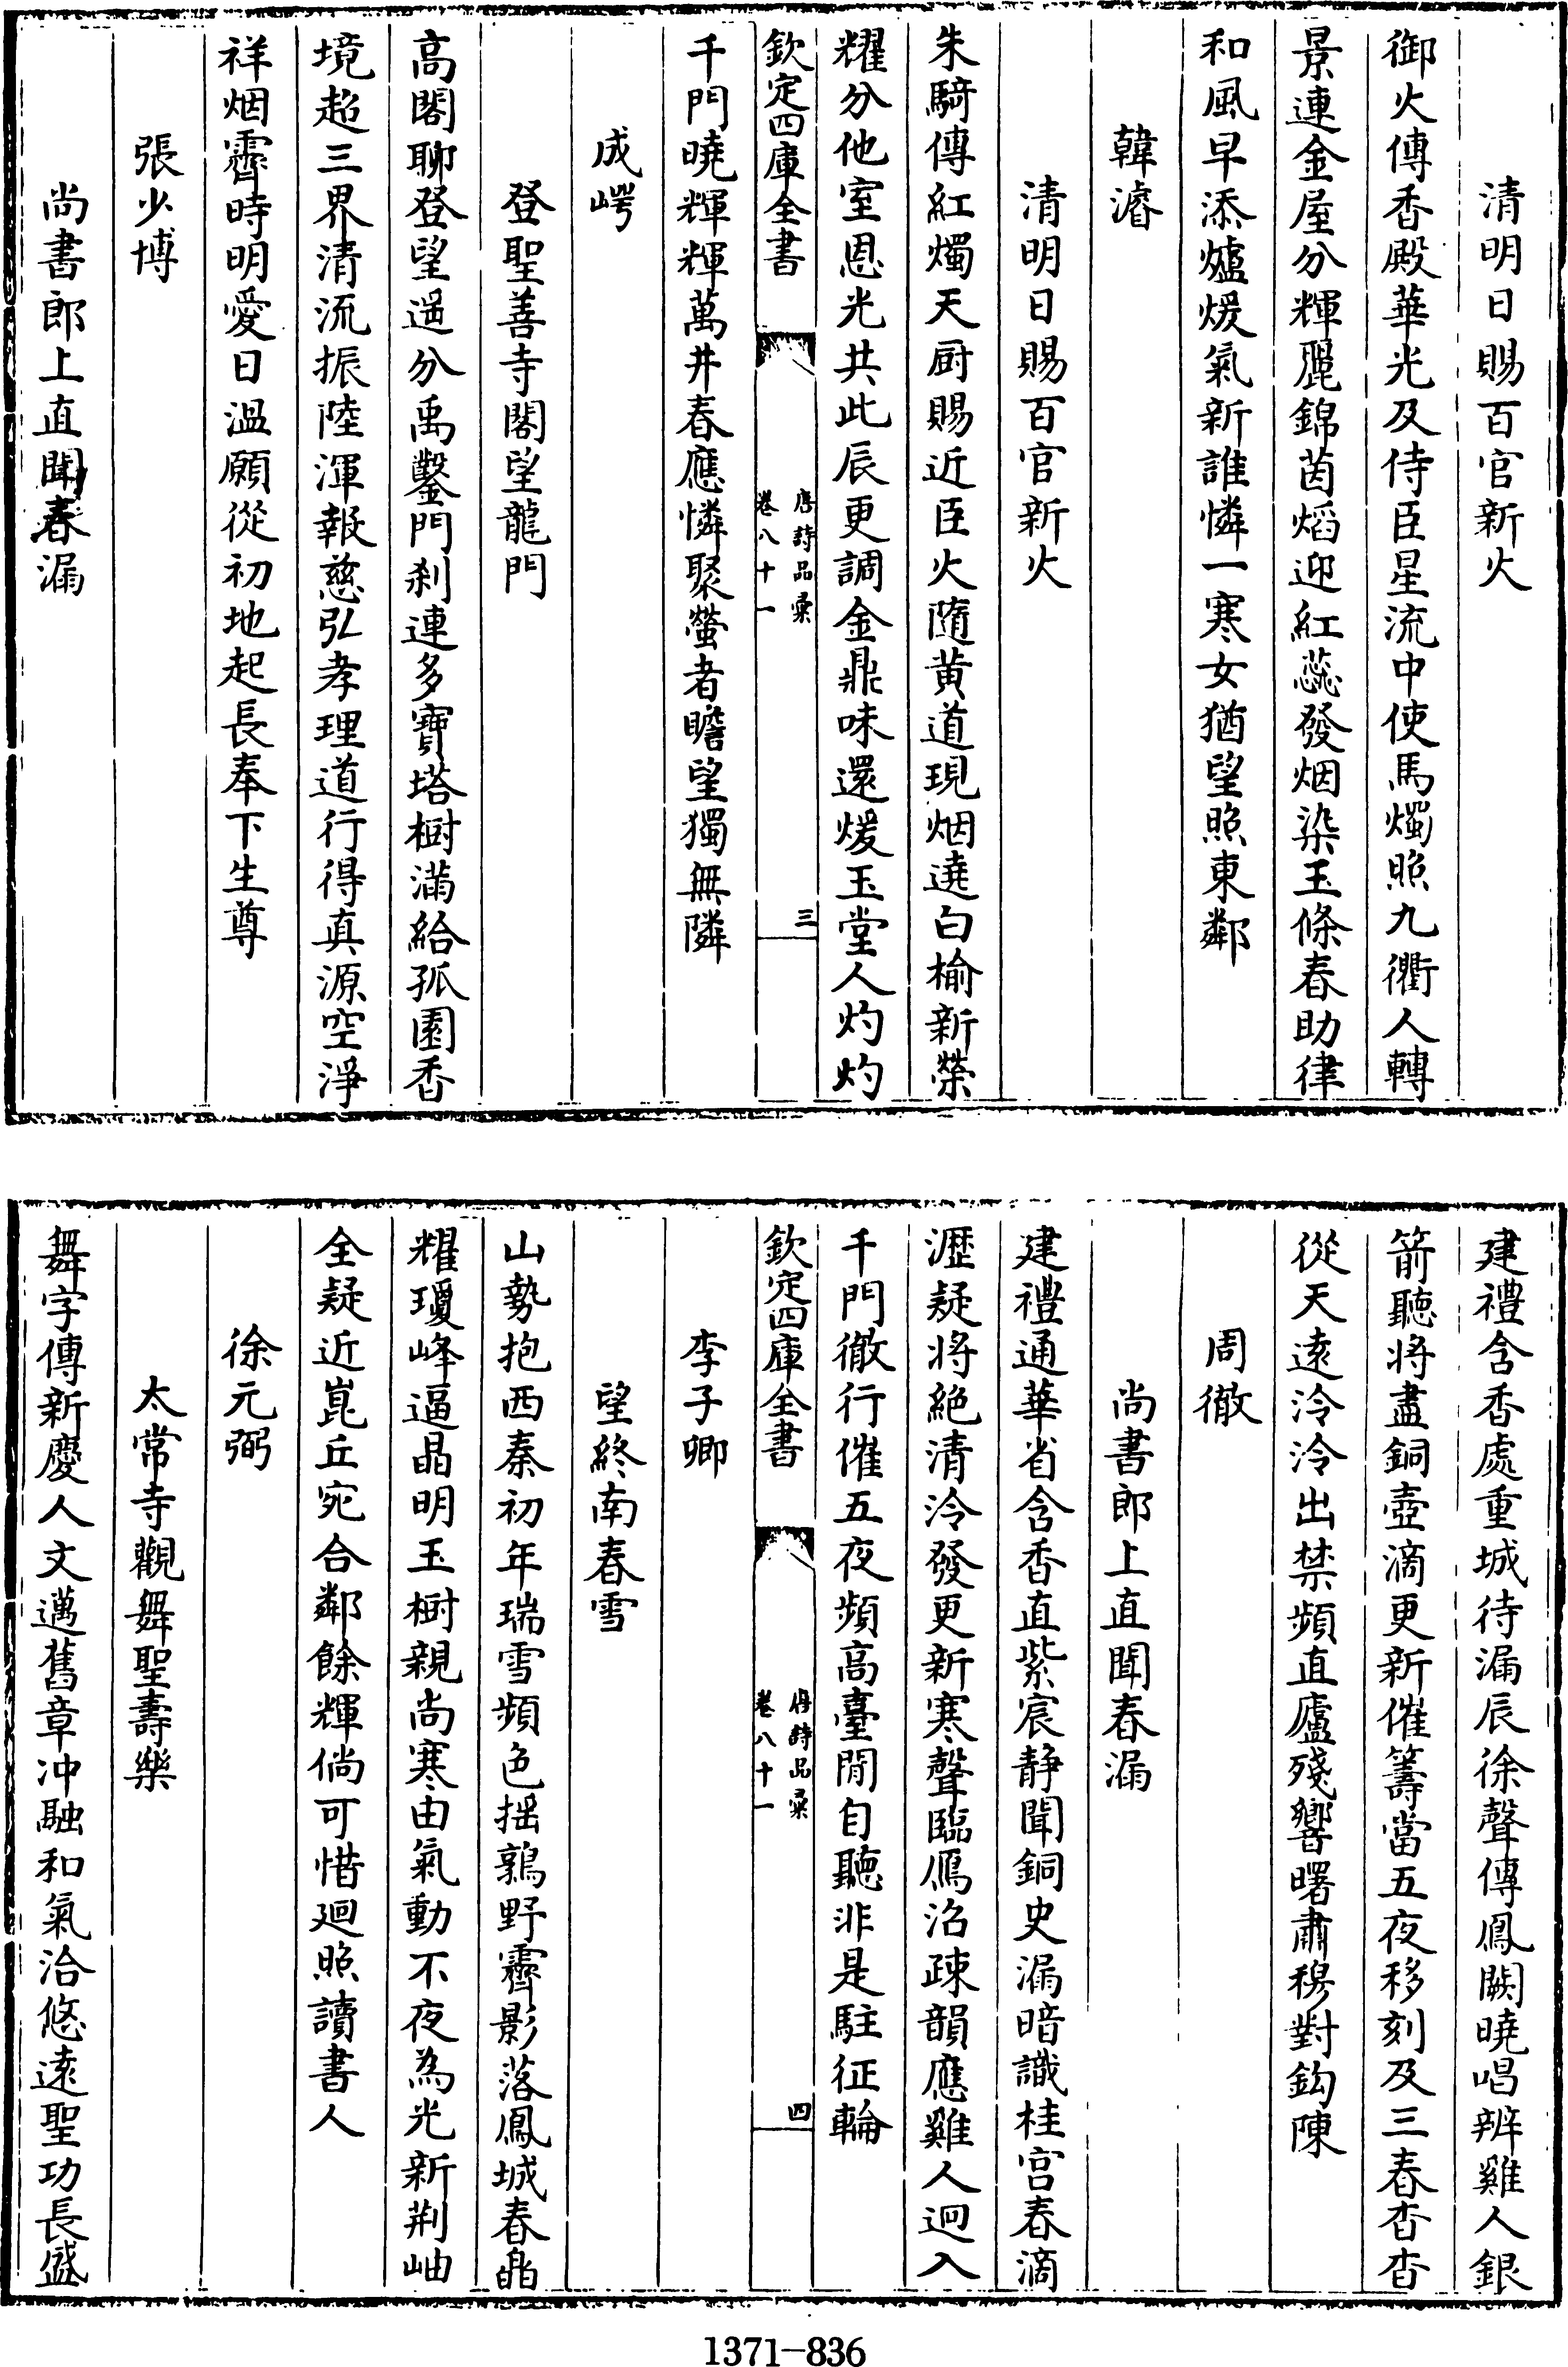 清明日賜百官新火
御火傳香殿華光及侍臣星流中使馬燭照九衢人轉
景連金屋分輝麗錦茵焰迎紅蕊發烟染玉條春助律
和風早添爐煖氣新誰憐一寒女猶望照東鄰
韓濬
清明日賜百官新火
朱騎傳紅燭天厨賜近臣火隨黄道現烟遶白榆新榮
耀分他室恩光共此辰更調金鼎味還煖玉堂人灼灼
欽定四庫全書
唐詩品彙
卷八十一
三
千門曉輝輝萬井春應憐聚螢者瞻望獨無隣
成崿
登聖善寺閣望龍門
高閣聊登望遥分禹鑿門刹連多寶塔樹滿給孤園香
境超三界清流振陸渾報慈弘孝理道行得真源空淨
祥烟霽時明愛日溫願從初地起長奉下生尊
張少博
尚書郎上直聞春漏
建禮含香處重城待漏辰徐聲傳鳳闕曉唱辨雞人銀
箭聽將盡銅壺滴更新催籌當五夜移刻及三春杳杳
從天遠泠泠出禁頻直廬殘響曙肅穆對鈎陳
周徹
尚書郎上直聞春漏
建禮通華省含香直紫宸静聞銅史漏暗識桂宫春滴
瀝疑将絶清泠發更新寒聲臨鴈沼疎韻應雞人迥入
千門徹行催五夜頻高臺閒自聽非是駐征輪
欽定四庫全書
唐詩品彙
卷八十一
四
李子卿
望終南春雪
山勢抱西秦初年瑞雪頻色揺鶉野霽影落鳳城春皓
耀瓊峰逼晶明玉樹親尚寒由氣動不夜為光新荆岫
全疑近崑丘宛合鄰餘輝倘可惜迴照讀書人
徐元弼
太常寺觀舞聖壽樂
舞字傳新慶人文邁舊章冲融和氣洽悠遠聖功長盛
1371-836